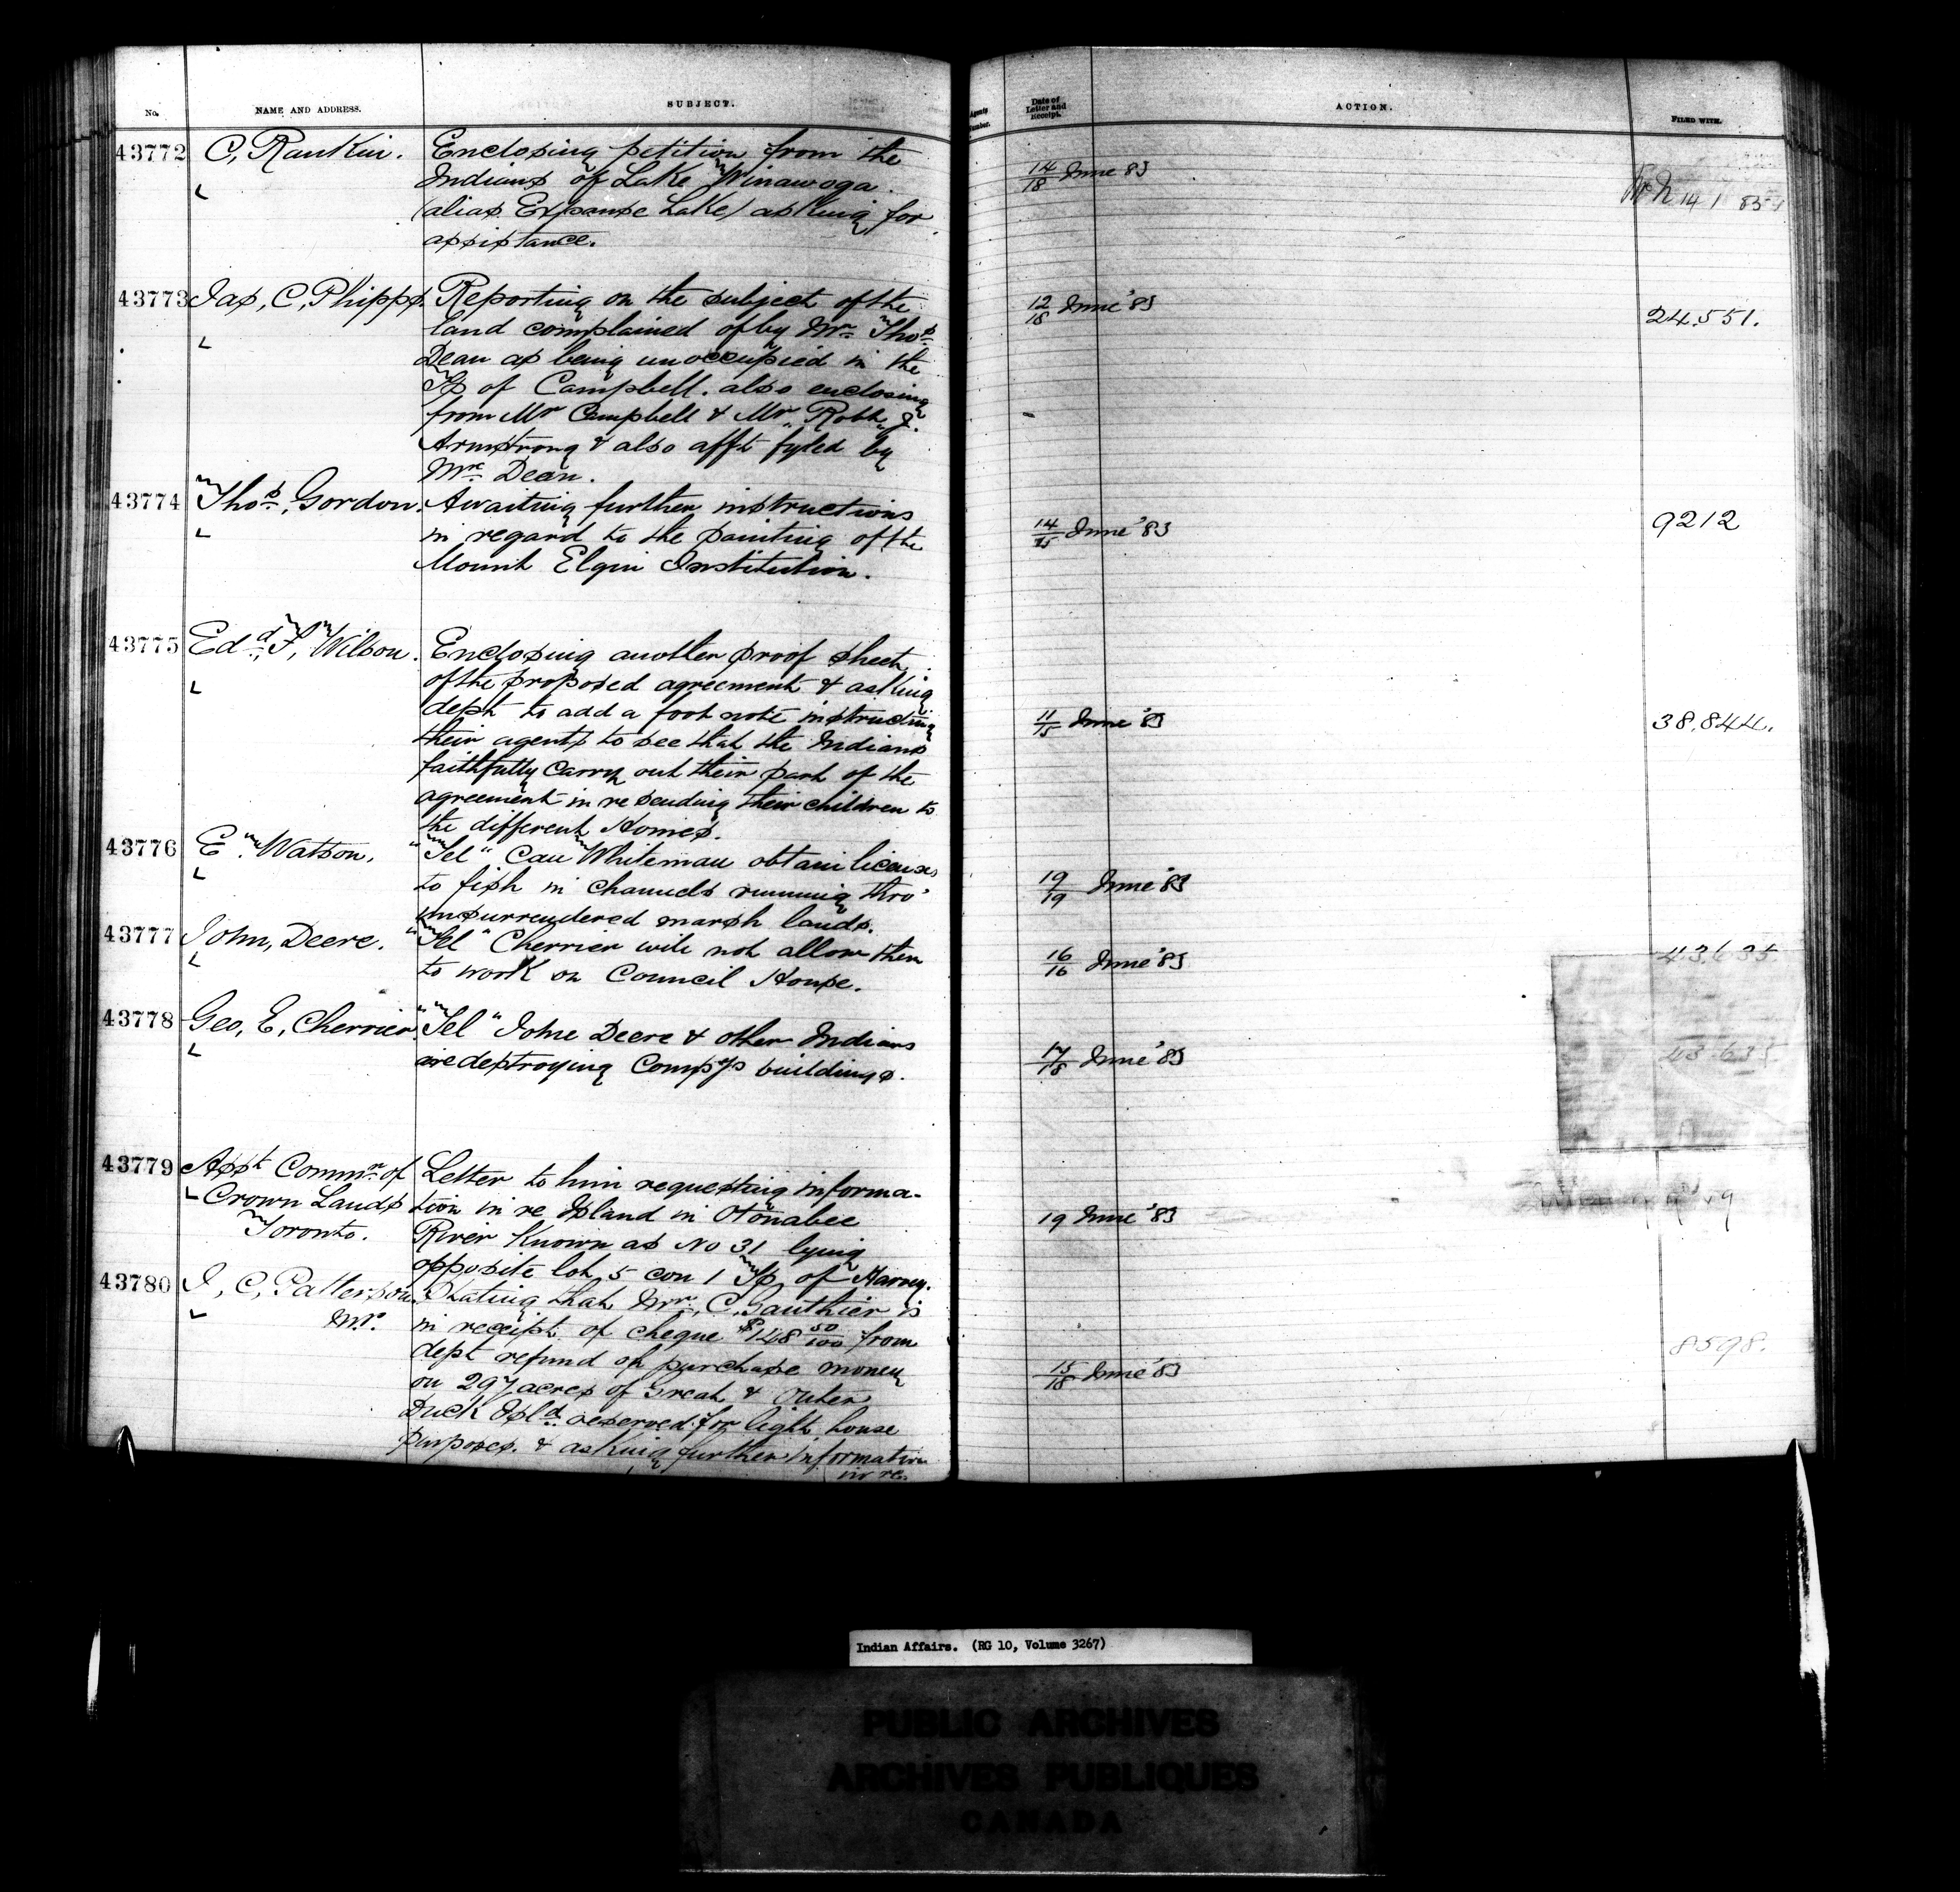 No.
NAME AND ADDRESS.
SUBJECT.
Agents Number.
Date of Letter and Receipt.
ACTION.
FILED WITH.
43772
C, Rankin.
Enclosing petition from the
Indians of Lake Winawoga.
(alias Expanse Lake) asking for
assistance.
14/18 June 83
43773
Jas, C, Phipps.
Reporting on the subject of the
land complained of by Mr Thos
Dean as being unoccupied in the
Tp of Campbell. also enclosing
from Mr Campbell & Mr Robt J.
Armstrong & also afft fyled by
Mr Dean.
12/18 June '83
24.551.
43774
Thos, Gordon.
Awaiting further instructions
in regard to the painting of the
Mount Elgin Institution.
14/15 June '83
9212
43775
Edd, F, Wilson.
Enclosing another proof sheet
of the proposed agreement & asking
dept to add a foot note instructing
their agents to see that the Indians
faithfully carry out their part of the
agreement in re sending their children to
the different Homes.
11/15 June '83
38.844.
43776
E. Watson.
"Tel" Can Whiteman obtain licenses
to fish in channels running thro'
unsurrendered marsh lands.
19/19 June '83
43777
John, Deere.
"Tel" Cherrier will not allow them
to work on Council House.
16/16 June '83
43.635.
43778
Geo, E, Cherrier.
"Tel" John Deere & other Indians
are destroying Comps buildings.
17/18 June '83
43.635
43779
Asst Commr of
Crown Lands
Toronto.
Letter to him requesting informa-
tion in re Island in Otonabee
River known as No 31 lying
opposite lot 5 con 1 Tp of Harvey.
19 June '83
43780
J, C, Patterson.
Mr.
Stating that Mr, C, Gauthier is
in receipt of cheque $148 50/100 from
dept refund of purchase money
on 297 acres of Great & Outer
Duck Isld reserved for light house
purposes. & asking further information
in re.
15/18 June '83
8598.
Indian Affairs. (RG 10, Volume 3267)
PUBLIC ARCHIVES
ARCHIVES PUBLIQUES
CANADA